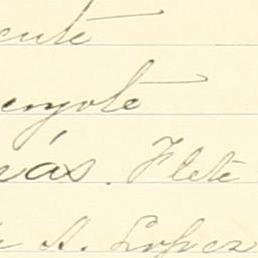 ente
enyote
más. Flete
A. Lopez